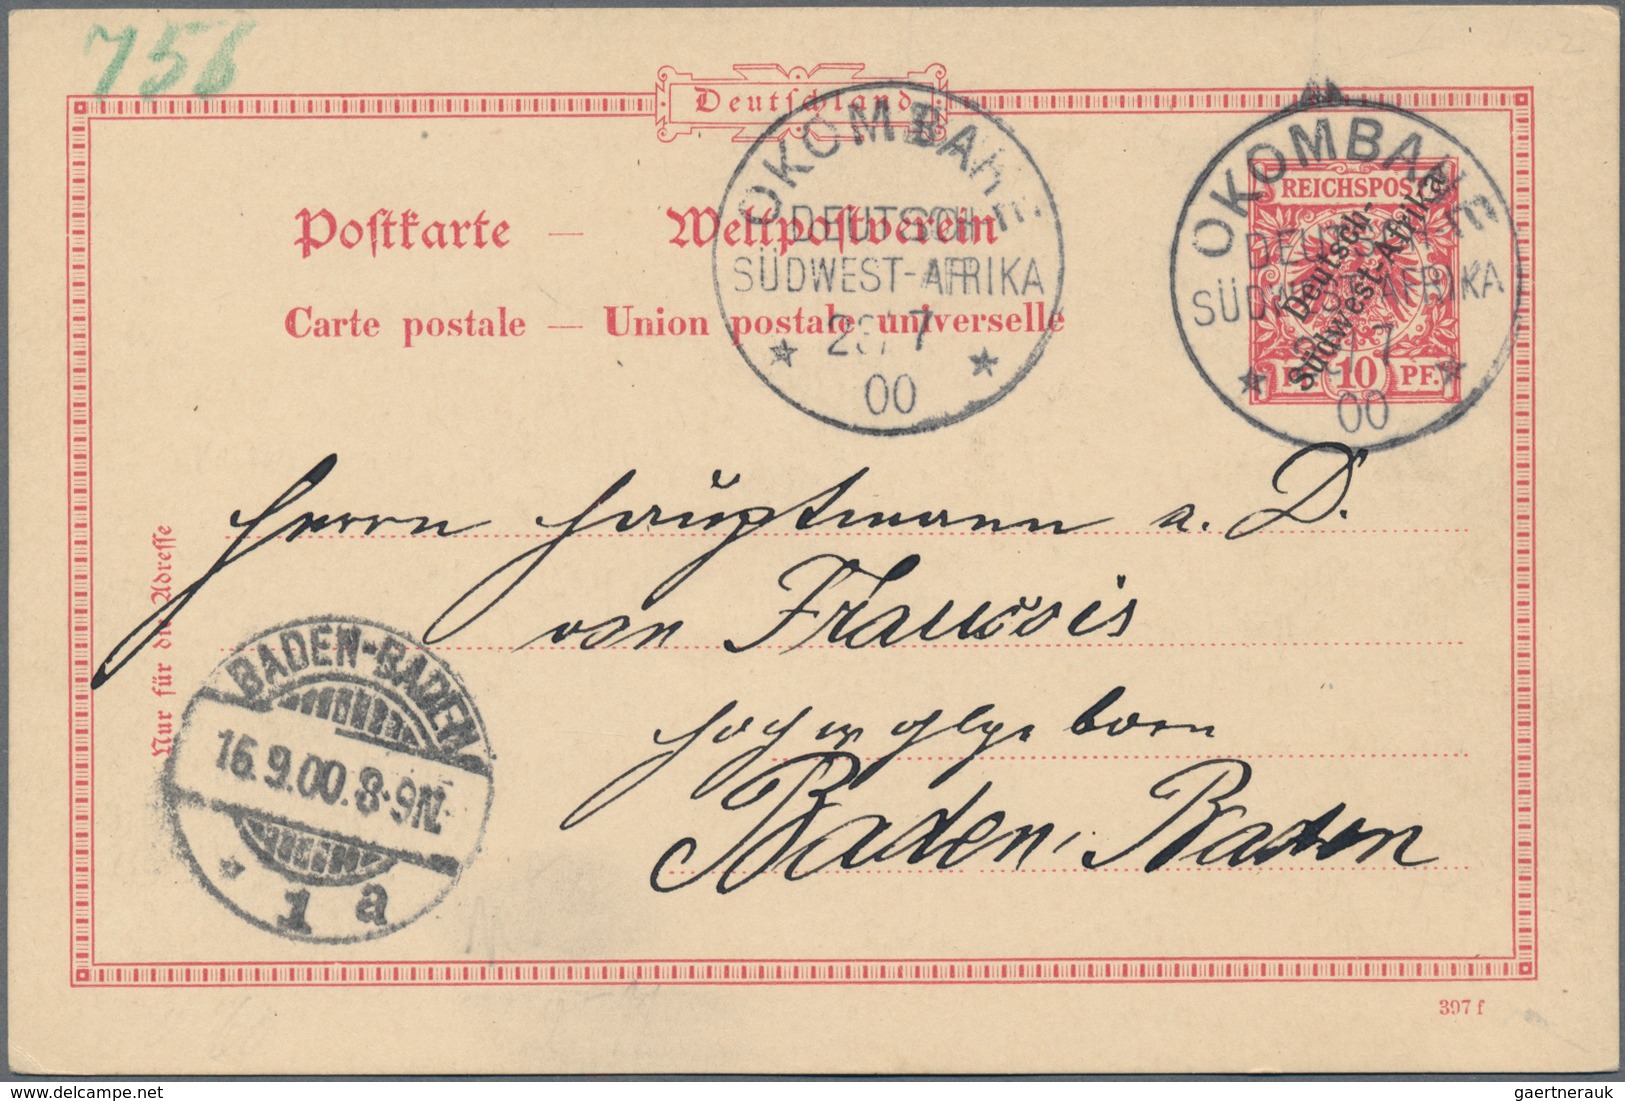 756
Deutschland
OKOMBAHE
DEUTSCH-
SÜDWEST-AFRIKA
29/7
00
OKOMBAHE
DEUTSCH-
SÜDWEST-AFRIKA
29/7
00
REICHSPOST
Deutsch-
Südwest-Afrika
PF. 10 PF.
Postkarte — Weltpostverein
Carte postale — Union postale universelle
Nur für die Adresse
Herrn Hauptmann a. D.
von François
Hochwohlgeboren
Baden-Baden
BADEN-BADEN
16.9.00.8-9N.
* 1 a
397 f
delcampe.net
gaertnerauk